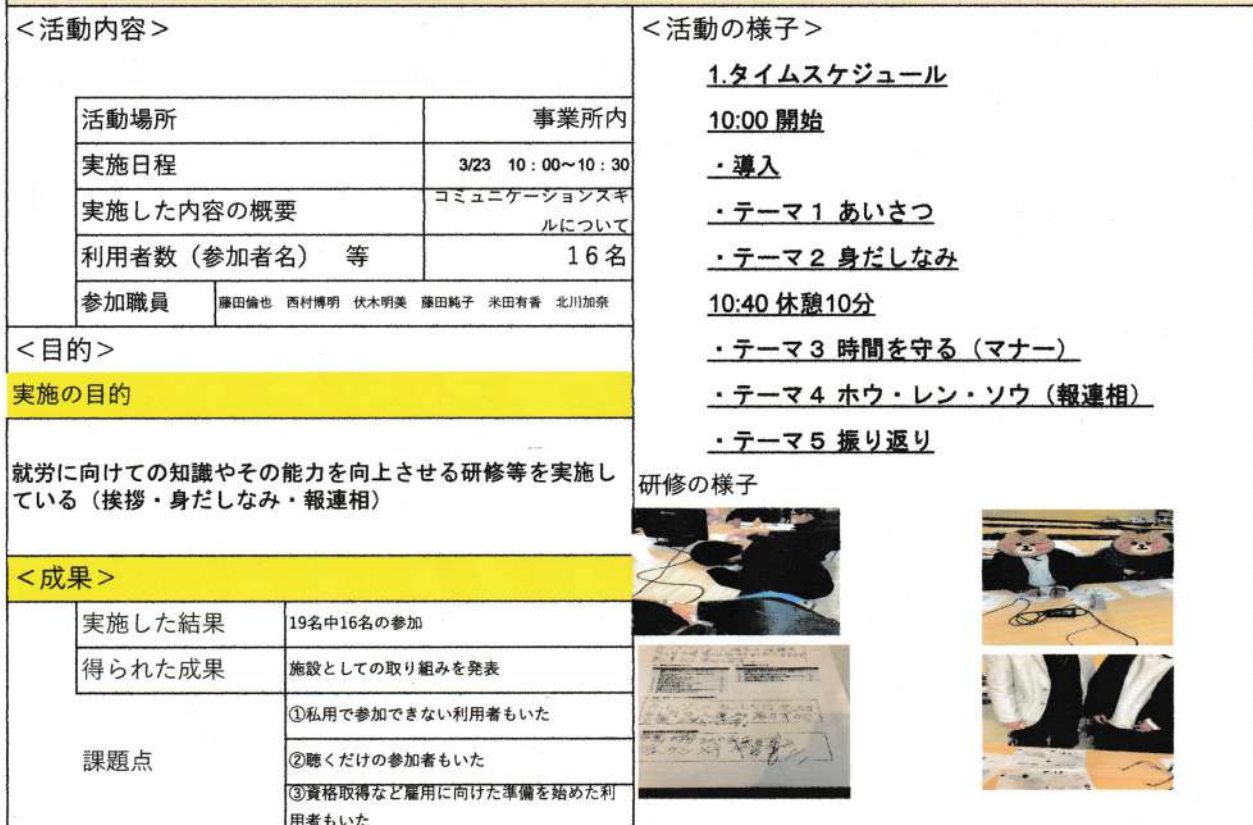 ＜活動内容＞
活動場所 事業所内
実施日程 3/23 10：00～10：30
実施した内容の概要 コミュニケーションスキ
ルについて
利用者数（参加者名） 等 １６名
参加職員 藤田倫也 西村博明 伏木明美 藤田純子 米田有香 北川加奈
＜目的＞
実施の目的
就労に向けての知識やその能力を向上させる研修等を実施し
ている（挨拶・身だしなみ・報連相）
＜成果＞
実施した結果 19名中16名の参加
得られた成果 施設としての取り組みを発表
課題点
①私用で参加できない利用者もいた
②聴くだけの参加者もいた
③資格取得など雇用に向けた準備を始めた利
用者もいた
＜活動の様子＞
1.タイムスケジュール
10:00 開始
・導入
・テーマ１ あいさつ
・テーマ２ 身だしなみ
10:40 休憩10分
・テーマ３ 時間を守る（マナー）
・テーマ４ ホウ・レン・ソウ（報連相）
・テーマ５ 振り返り
研修の様子